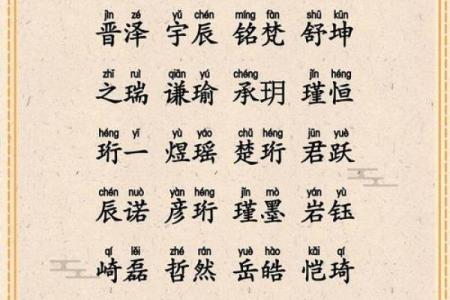 jìn zé yǔ chén míng fàn shū kūn
晋泽 宇辰 铭梵 舒坤
zhī ruì qiān yú chéng jǐn héng
之瑞 谦瑜 承玥 瑾恒
héng yī yù yáo chǔ héng jūn yuè
珩一 煜瑶 楚珩 君跃
chén nuò yàn héng jǐn mò yán yù
辰诺 彦珩 瑾墨 岩钰
qí lěi zhé rán yuè hào kǎi qí
崎磊 哲然 岳皓 恺琦